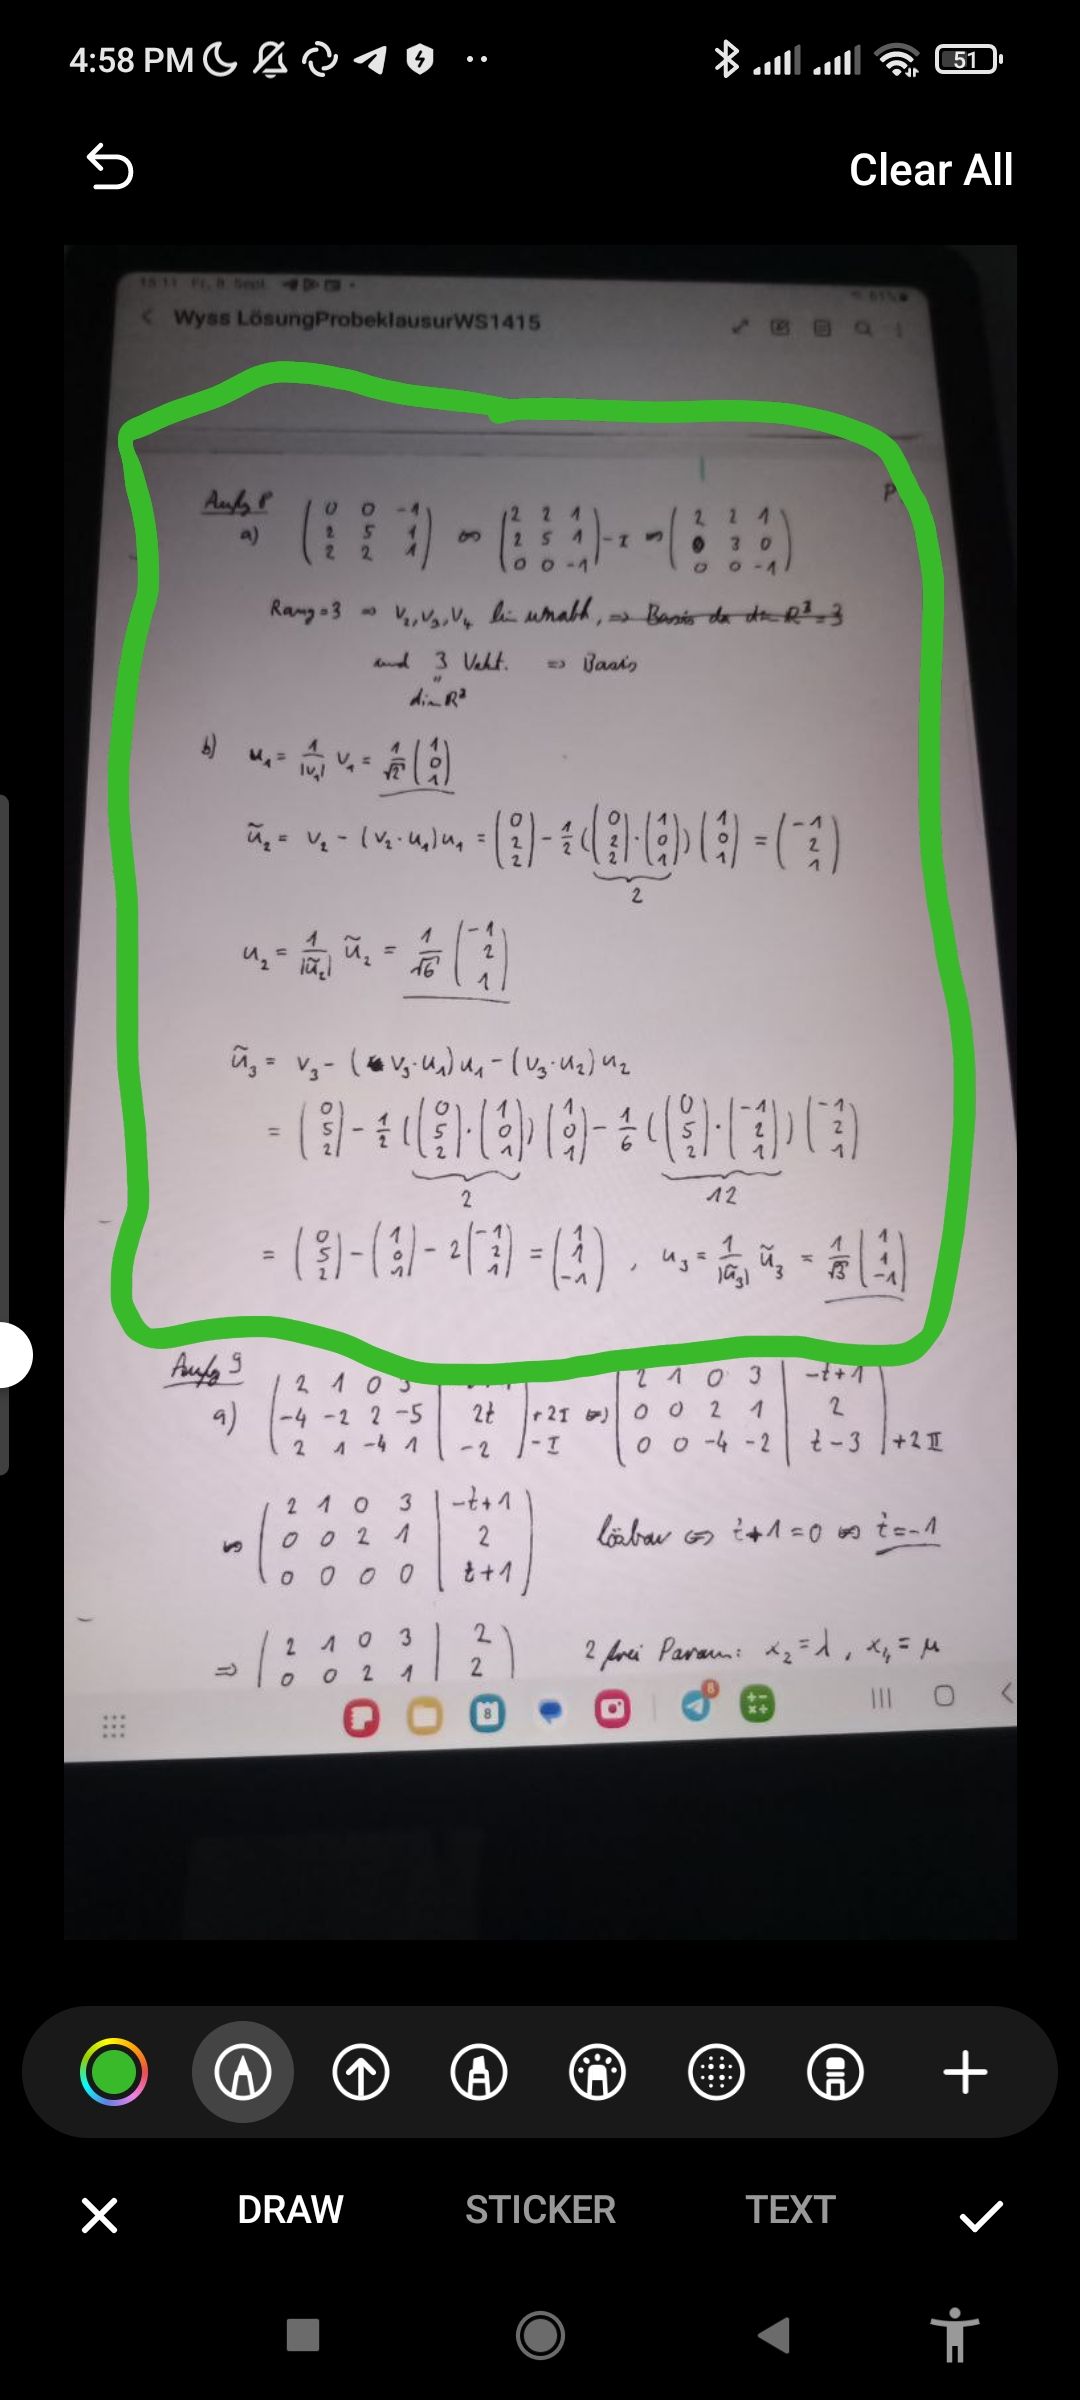 4:58 PM
51
Clear All
15:11 Fr. 8. Sept.
61%
Wyss LösungProbeklausurWS1415
Aufg 8
P
a) ( 0 0 -1 ; 2 5 1 ; 2 2 1 ) ∞ ( 2 2 1 ; 2 5 1 ; 0 0 -1 ) -I ∞ ( 2 2 1 ; 0 3 0 ; 0 0 -1 )
Rang=3 ⇒ v₂,v₃,v₄ lin unabh, ⇒ Basis da dim R³=3
und 3 Vekt. ⇒ Basis
"
dim R³
b) u₁ = 1/|v₁| v₁ = 1/√2 ( 1 ; 0 ; 1 )
ũ₂ = v₂ - (v₂·u₁)u₁ = ( 0 ; 2 ; 2 ) - 1/2 (( 0 ; 2 ; 2 )·( 1 ; 0 ; 1 )) ( 1 ; 0 ; 1 ) = ( -1 ; 2 ; 1 )
2
u₂ = 1/|ũ₂| ũ₂ = 1/√6 ( -1 ; 2 ; 1 )
ũ₃ = v₃ - (v₃·u₁)u₁ - (v₃·u₂)u₂
= ( 0 ; 5 ; 2 ) - 1/2 (( 0 ; 5 ; 2 )·( 1 ; 0 ; 1 )) ( 1 ; 0 ; 1 ) - 1/6 (( 0 ; 5 ; 2 )·( -1 ; 2 ; 1 )) ( -1 ; 2 ; 1 )
2 12
= ( 0 ; 5 ; 2 ) - ( 1 ; 0 ; 1 ) - 2( -1 ; 2 ; 1 ) = ( 1 ; 1 ; -1 ) , u₃ = 1/|ũ₃| ũ₃ = 1/√3 ( 1 ; 1 ; -1 )
Aufg 9
a) ( 2 1 0 3 | ; -4 -2 2 -5 | 2t ; 2 1 -4 1 | -2 ) +2I -I ⇔ ( 2 1 0 3 | -t+1 ; 0 0 2 1 | 2 ; 0 0 -4 -2 | t-3 ) +2II
∞ ( 2 1 0 3 | -t+1 ; 0 0 2 1 | 2 ; 0 0 0 0 | t+1 ) lösbar ⇔ t+1=0 ⇔ t=-1
⇒ ( 2 1 0 3 | 2 ; 0 0 2 1 | 2 ) 2 frei Param: x₂=λ, x₄=μ
8
8
DRAW
STICKER
TEXT